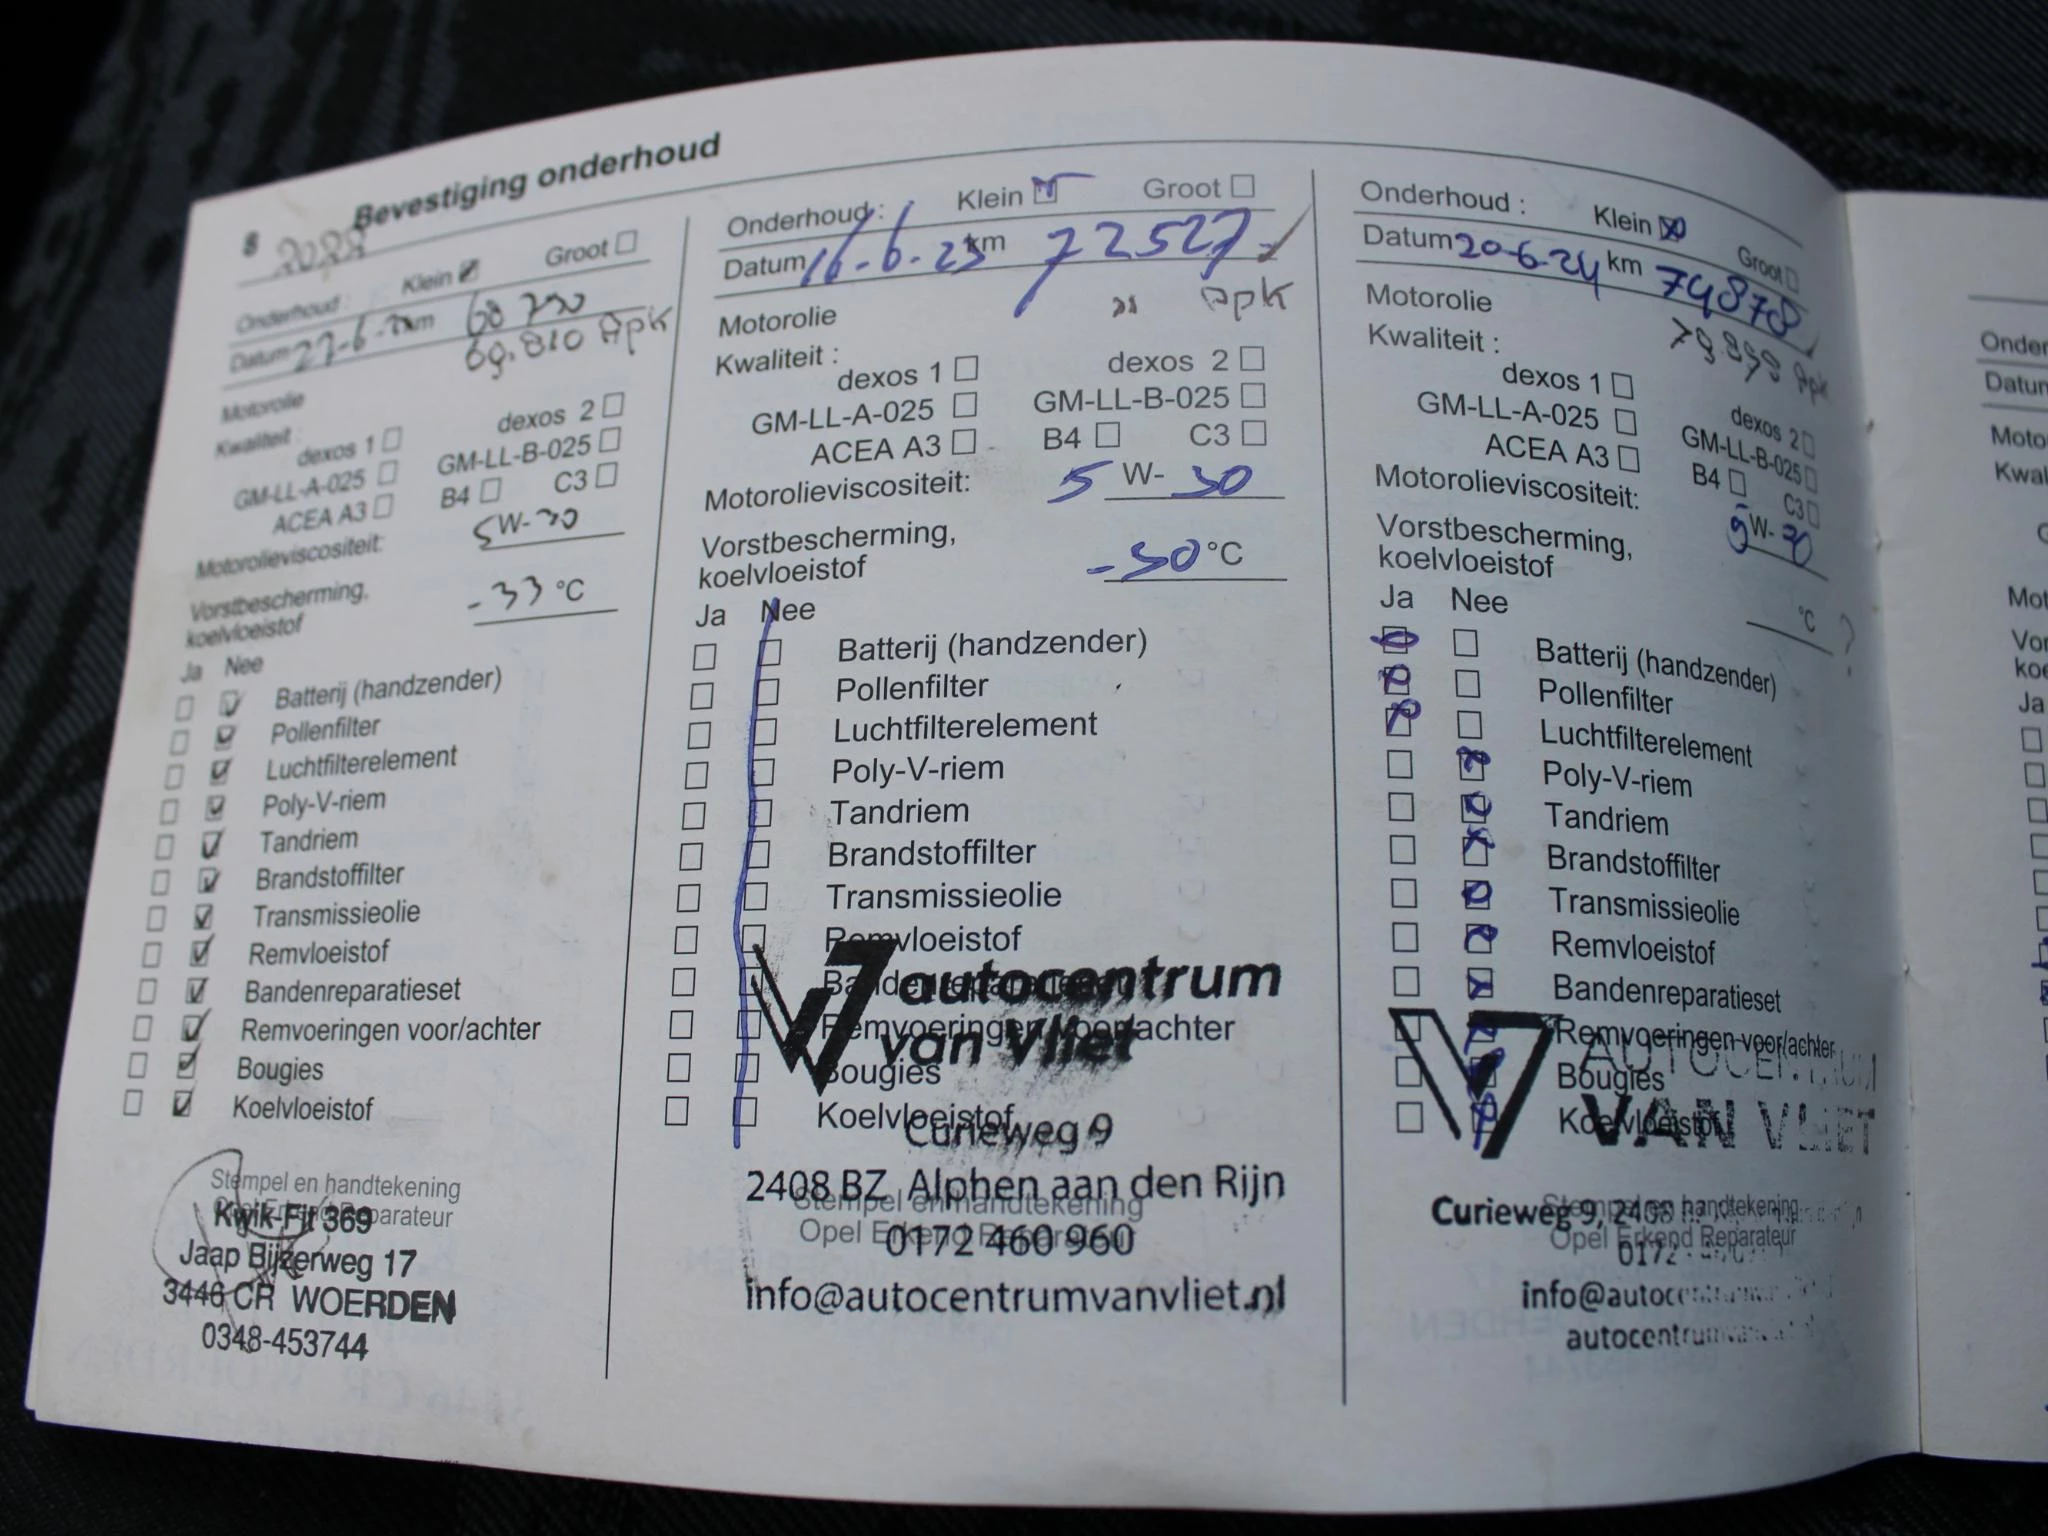 8 Bevestiging onderhoud
Onderhoud : Klein Groot
Datum 27-6- km 69.810 Apk
Motorolie
Kwaliteit :
dexos 1 dexos 2
GM-LL-A-025 GM-LL-B-025
ACEA A3 B4 C3
Motorolieviscositeit: 5W-30
Vorstbescherming,
koelvloeistof -33 °C
Ja Nee
Batterij (handzender)
Pollenfilter
Luchtfilterelement
Poly-V-riem
Tandriem
Brandstoffilter
Transmissieolie
Remvloeistof
Bandenreparatieset
Remvoeringen voor/achter
Bougies
Koelvloeistof
Stempel en handtekening
Opel Erkend Reparateur
Kwik-Fit 369
Jaap Bijzerweg 17
3446 CR WOERDEN
0348-453744
Onderhoud : Klein Groot
Datum 16-6-23 km 72527
Apk
Motorolie
Kwaliteit :
dexos 1 dexos 2
GM-LL-A-025 GM-LL-B-025
ACEA A3 B4 C3
Motorolieviscositeit: 5 W- 30
Vorstbescherming,
koelvloeistof -30 °C
Ja Nee
Batterij (handzender)
Pollenfilter
Luchtfilterelement
Poly-V-riem
Tandriem
Brandstoffilter
Transmissieolie
Remvloeistof
Bandenreparatieset
Remvoeringen voor/achter
Bougies
Koelvloeistof
autocentrum
van Vliet
Curieweg 9
2408 BZ Alphen aan den Rijn
Stempel en handtekening
Opel Erkend Reparateur
0172 460 960
info@autocentrumvanvliet.nl
Onderhoud : Klein Groot
Datum 20-6-24 km 74878
Apk
Motorolie
Kwaliteit :
dexos 1 dexos 2
GM-LL-A-025 GM-LL-B-025
ACEA A3 B4 C3
Motorolieviscositeit: 5 W- 30
Vorstbescherming,
koelvloeistof °C ?
Ja Nee
Batterij (handzender)
Pollenfilter
Luchtfilterelement
Poly-V-riem
Tandriem
Brandstoffilter
Transmissieolie
Remvloeistof
Bandenreparatieset
Remvoeringen voor/achter
Bougies
Koelvloeistof
AUTOCENTRUM
VAN VLIET
Stempel en handtekening
Opel Erkend Reparateur
Curieweg 9, 2408
0172
Ja